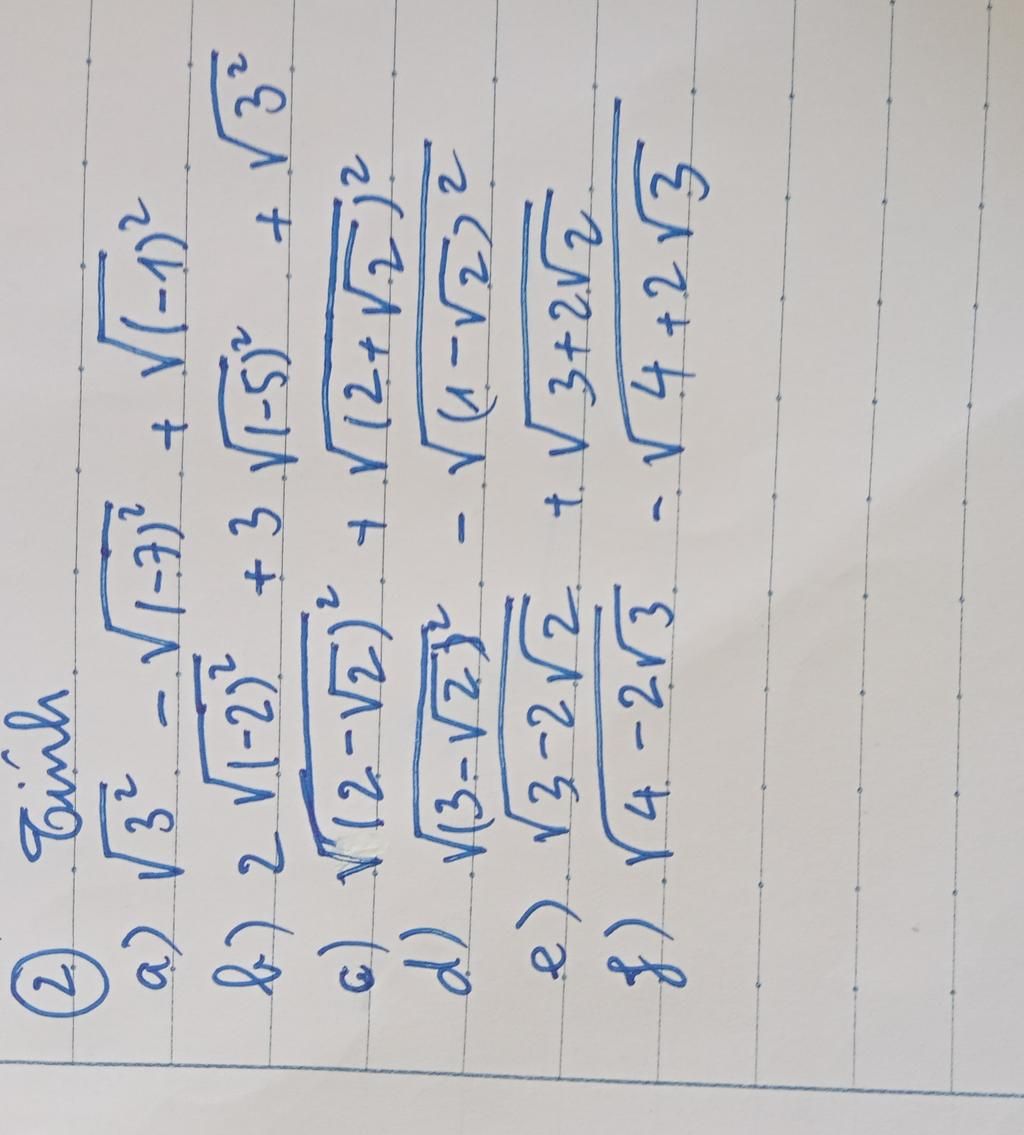 ② Tính
a) √3² - √(-7)² + √(-1)²
b) 2√(-2)² + 3√(-5)² + √3²
c) √(2-√2)² + √(2+√2)²
d) √(3-√2)² - √(1-√2)²
e) √3-2√2 + √3+2√2
f) √4-2√3 - √4+2√3